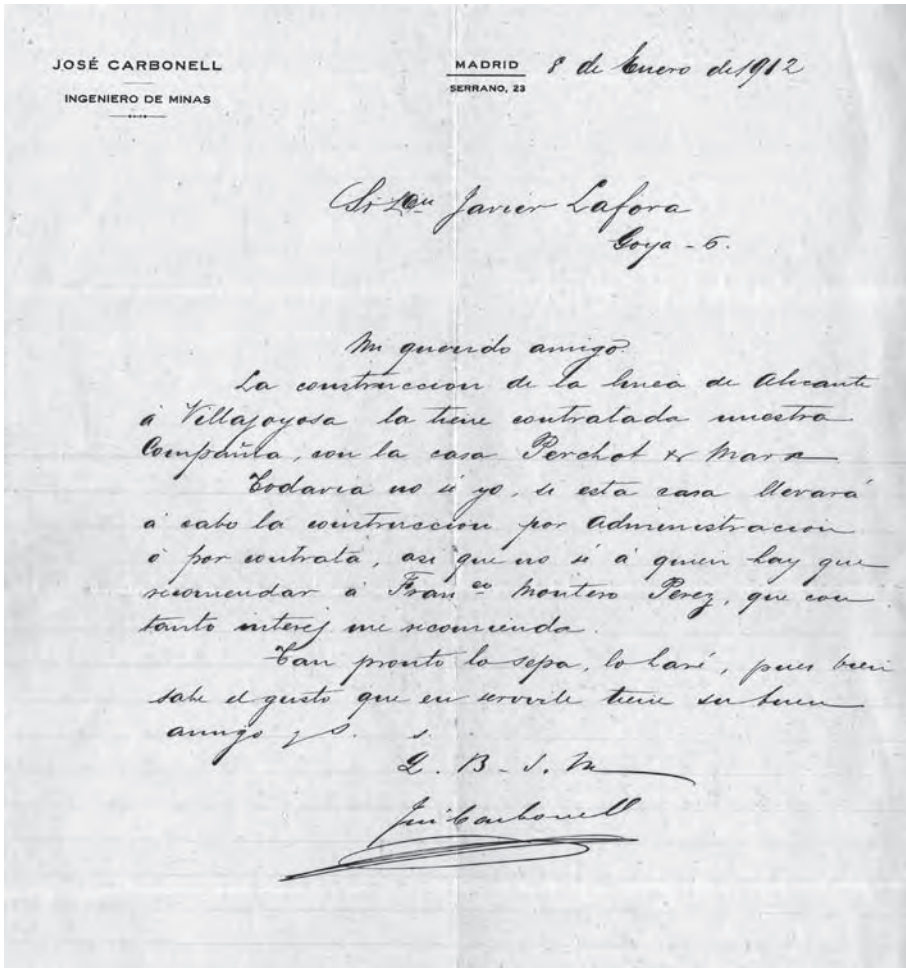 JOSÉ CARBONELL
INGENIERO DE MINAS
MADRID
SERRANO, 23
8 de Enero de 1912
Javier Lafora
Goya - 6.
Mi querido amigo
La construccion de la linea de Alicante
á Villajoyosa la tiene contratada nuestra
Compañia, con la casa Perchot & Marx
Todavia no sé yo, si esta casa llevará
á cabo la construccion por Administracion
ó por contrata, asi que no sé á quien hay que
recomendar á Fran co Montero Perez, que con
tanto interes me recomienda.
Tan pronto lo sepa, lo haré, pues bien
sabe el gusto que en servirle tiene su buen
amigo y S. s.
Q. B. S. M
José Carbonell